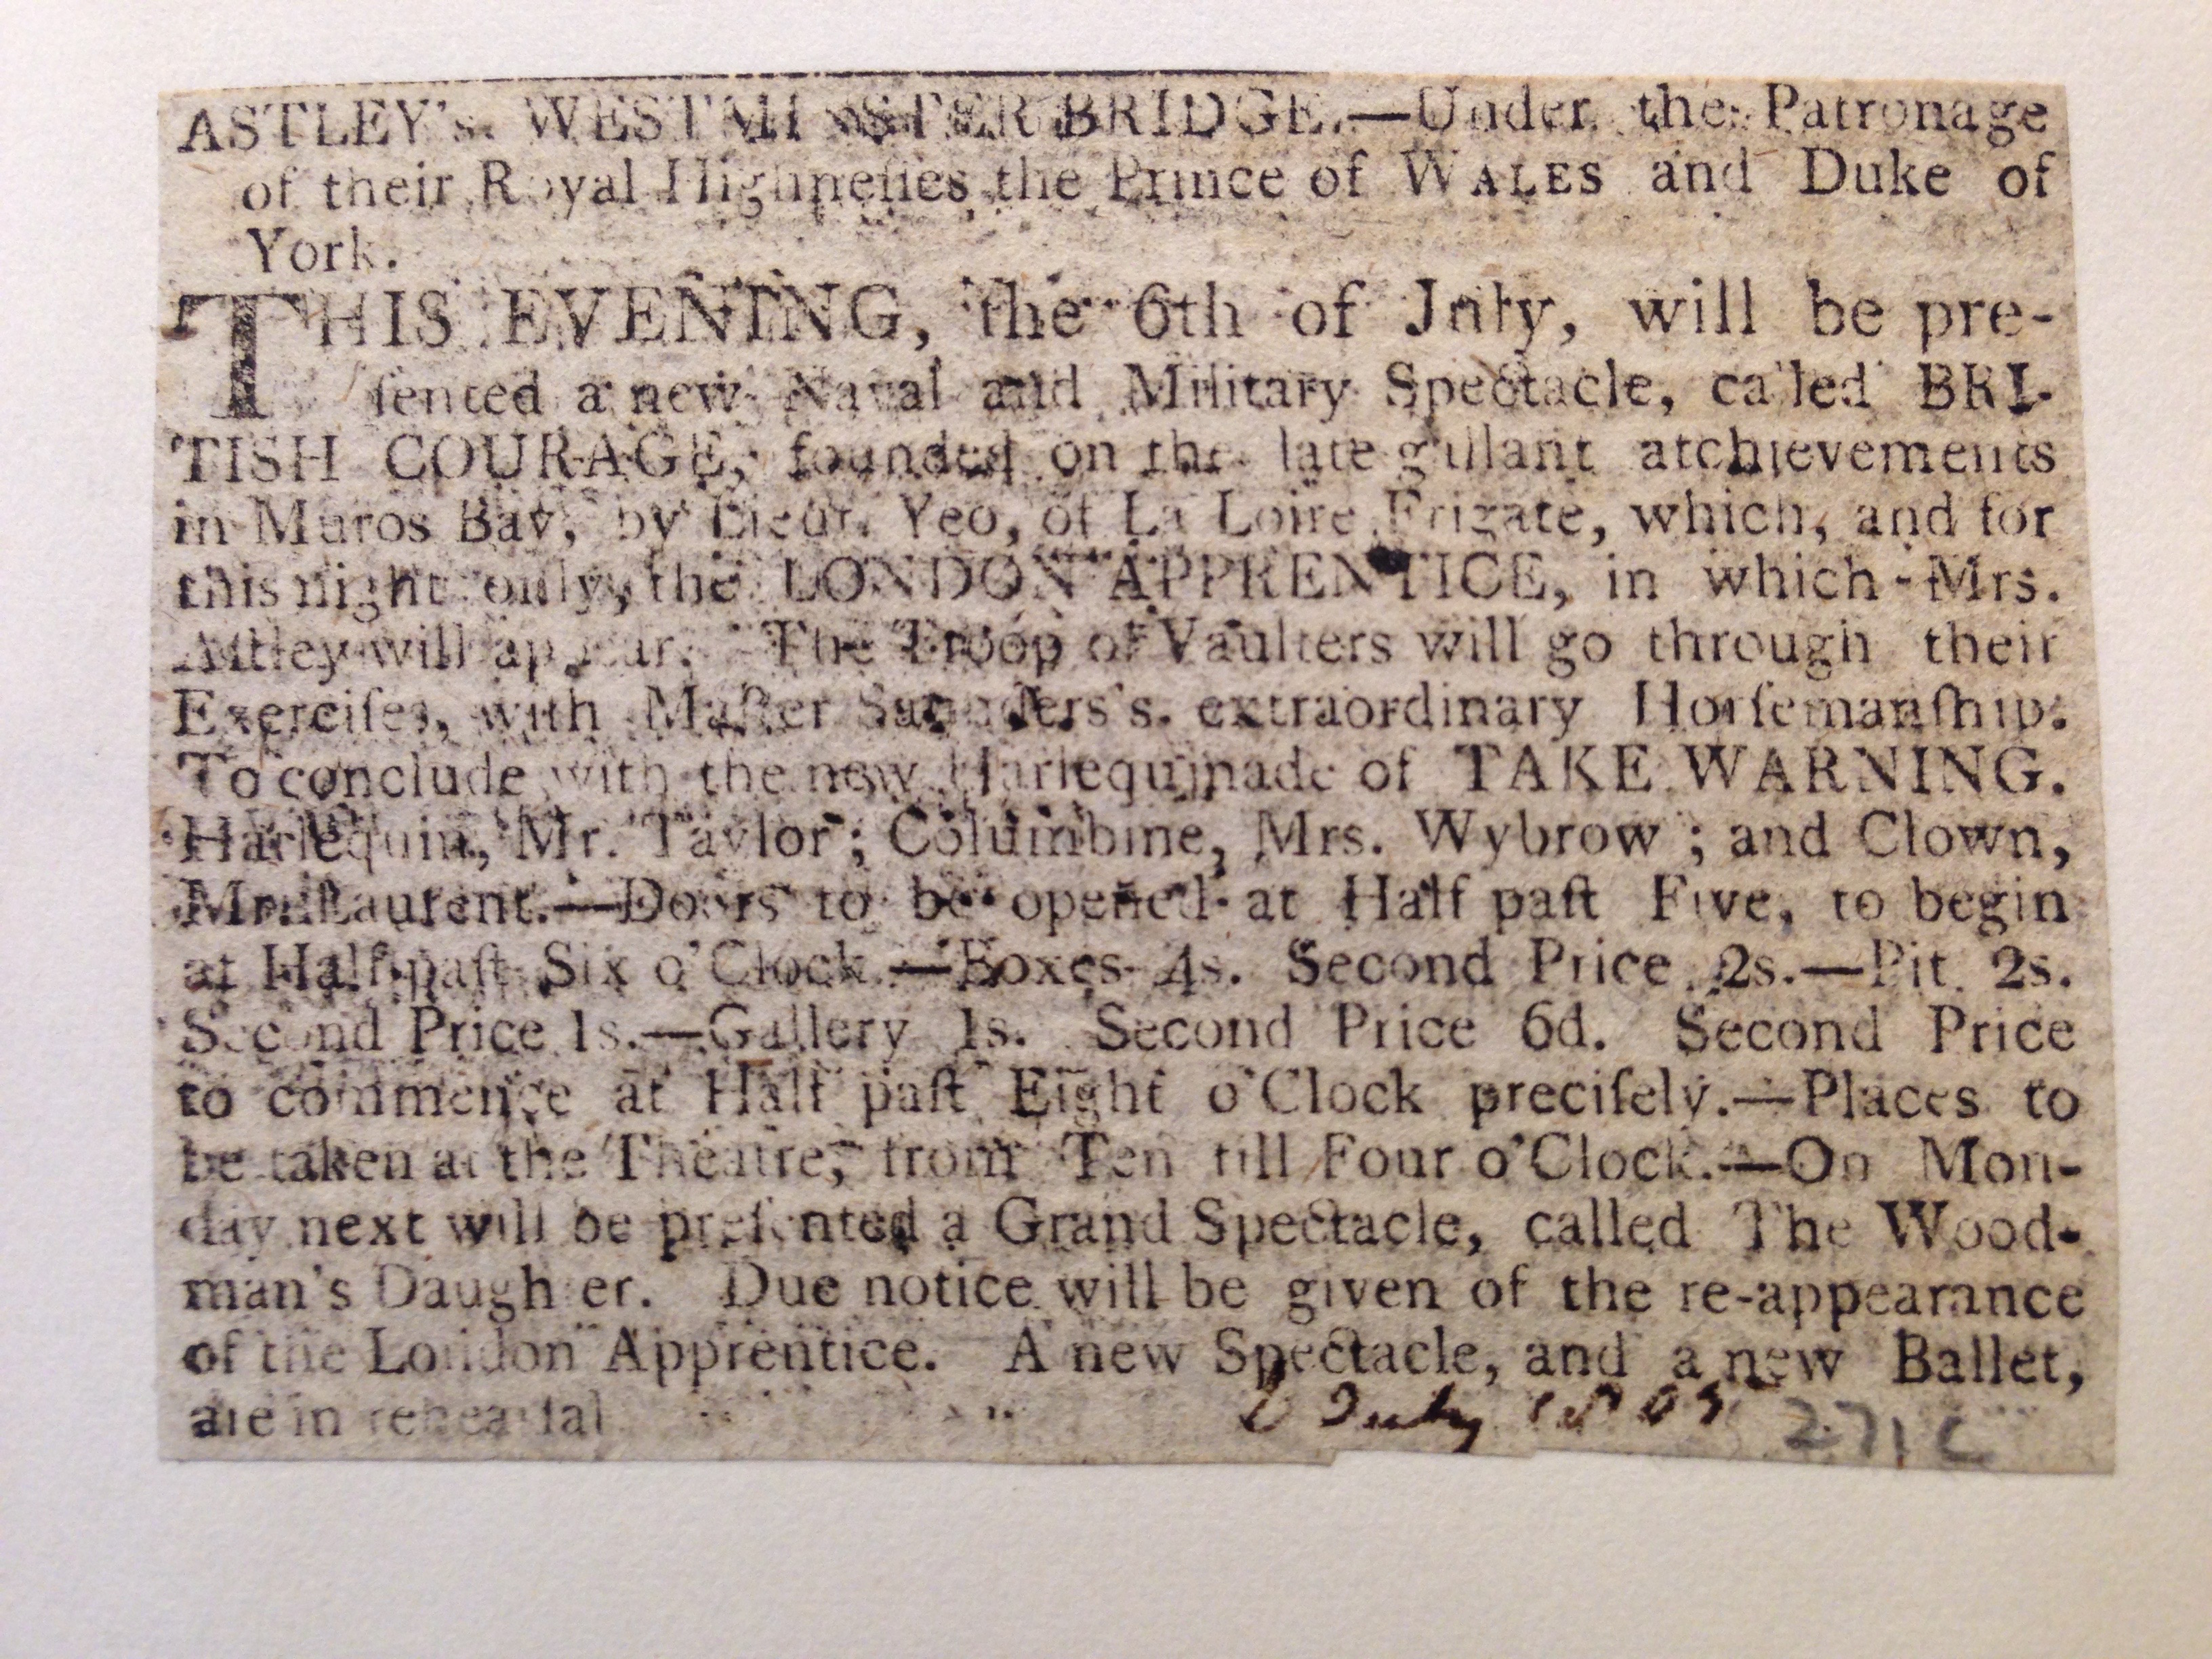 ASTLEY's. WESTMINSTER BRIDGE.—Under the Patronage
of their Royal Highneſſes the Prince of WALES and Duke of
York.
THIS EVENING, the 6th of July, will be pre-
ſented a new Naval and Military Spectacle, called BRI-
TISH COURAGE, founded on the late gallant atchievements
in Muros Bay, by Lieut. Yeo, of La Loire Frigate, which, and for
this night only, the LONDON APPRENTICE, in which Mrs.
Aſtley will appear. The Troop of Vaulters will go through their
Exerciſes, with Maſter Saunders's. extraordinary Horſemanſhip.
To conclude with the new Harlequinade of TAKE WARNING.
Harlequin, Mr. Taylor; Columbine, Mrs. Wybrow; and Clown,
Mr. Laurent.—Doors to be opened at Half paſt Five, to begin
at Half paſt Six o'Clock.—Boxes 4s. Second Price 2s.—Pit 2s.
Second Price 1s.—Gallery 1s. Second Price 6d. Second Price
to commence at Half paſt Eight o'Clock preciſely.—Places to
be taken at the Theatre, from Ten till Four o'Clock.—On Mon-
day next will be preſented a Grand Spectacle, called The Wood-
man's Daughter. Due notice will be given of the re-appearance
of the London Apprentice. A new Spectacle, and a new Ballet,
are in rehearſal
6 July 1805 271C